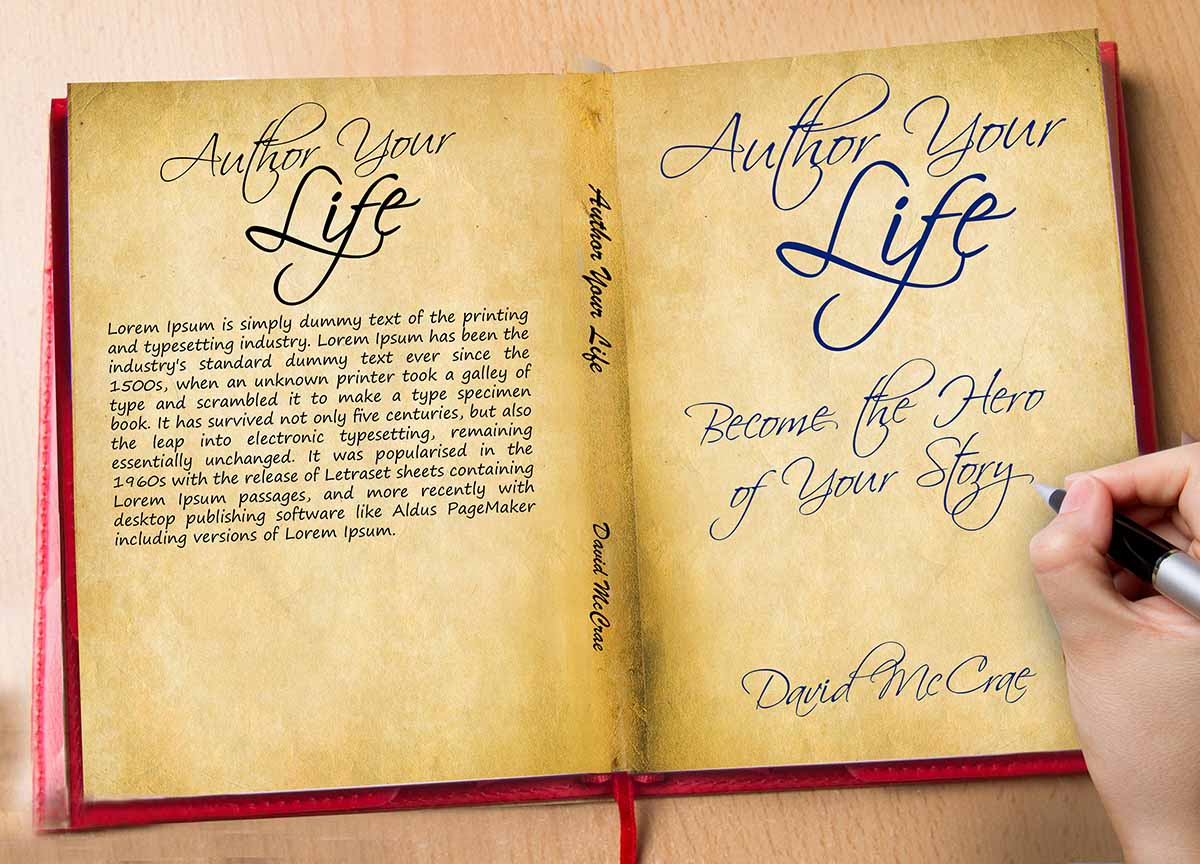 Author Your
Life
Lorem Ipsum is simply dummy text of the printing
and typesetting industry. Lorem Ipsum has been the
industry's standard dummy text ever since the
1500s, when an unknown printer took a galley of
type and scrambled it to make a type specimen
book. It has survived not only five centuries, but also
the leap into electronic typesetting, remaining
essentially unchanged. It was popularised in the
1960s with the release of Letraset sheets containing
Lorem Ipsum passages, and more recently with
desktop publishing software like Aldus PageMaker
including versions of Lorem Ipsum.
Author Your Life
David McCrae
Author Your
Life
Become the Hero
of Your Story
David McCrae